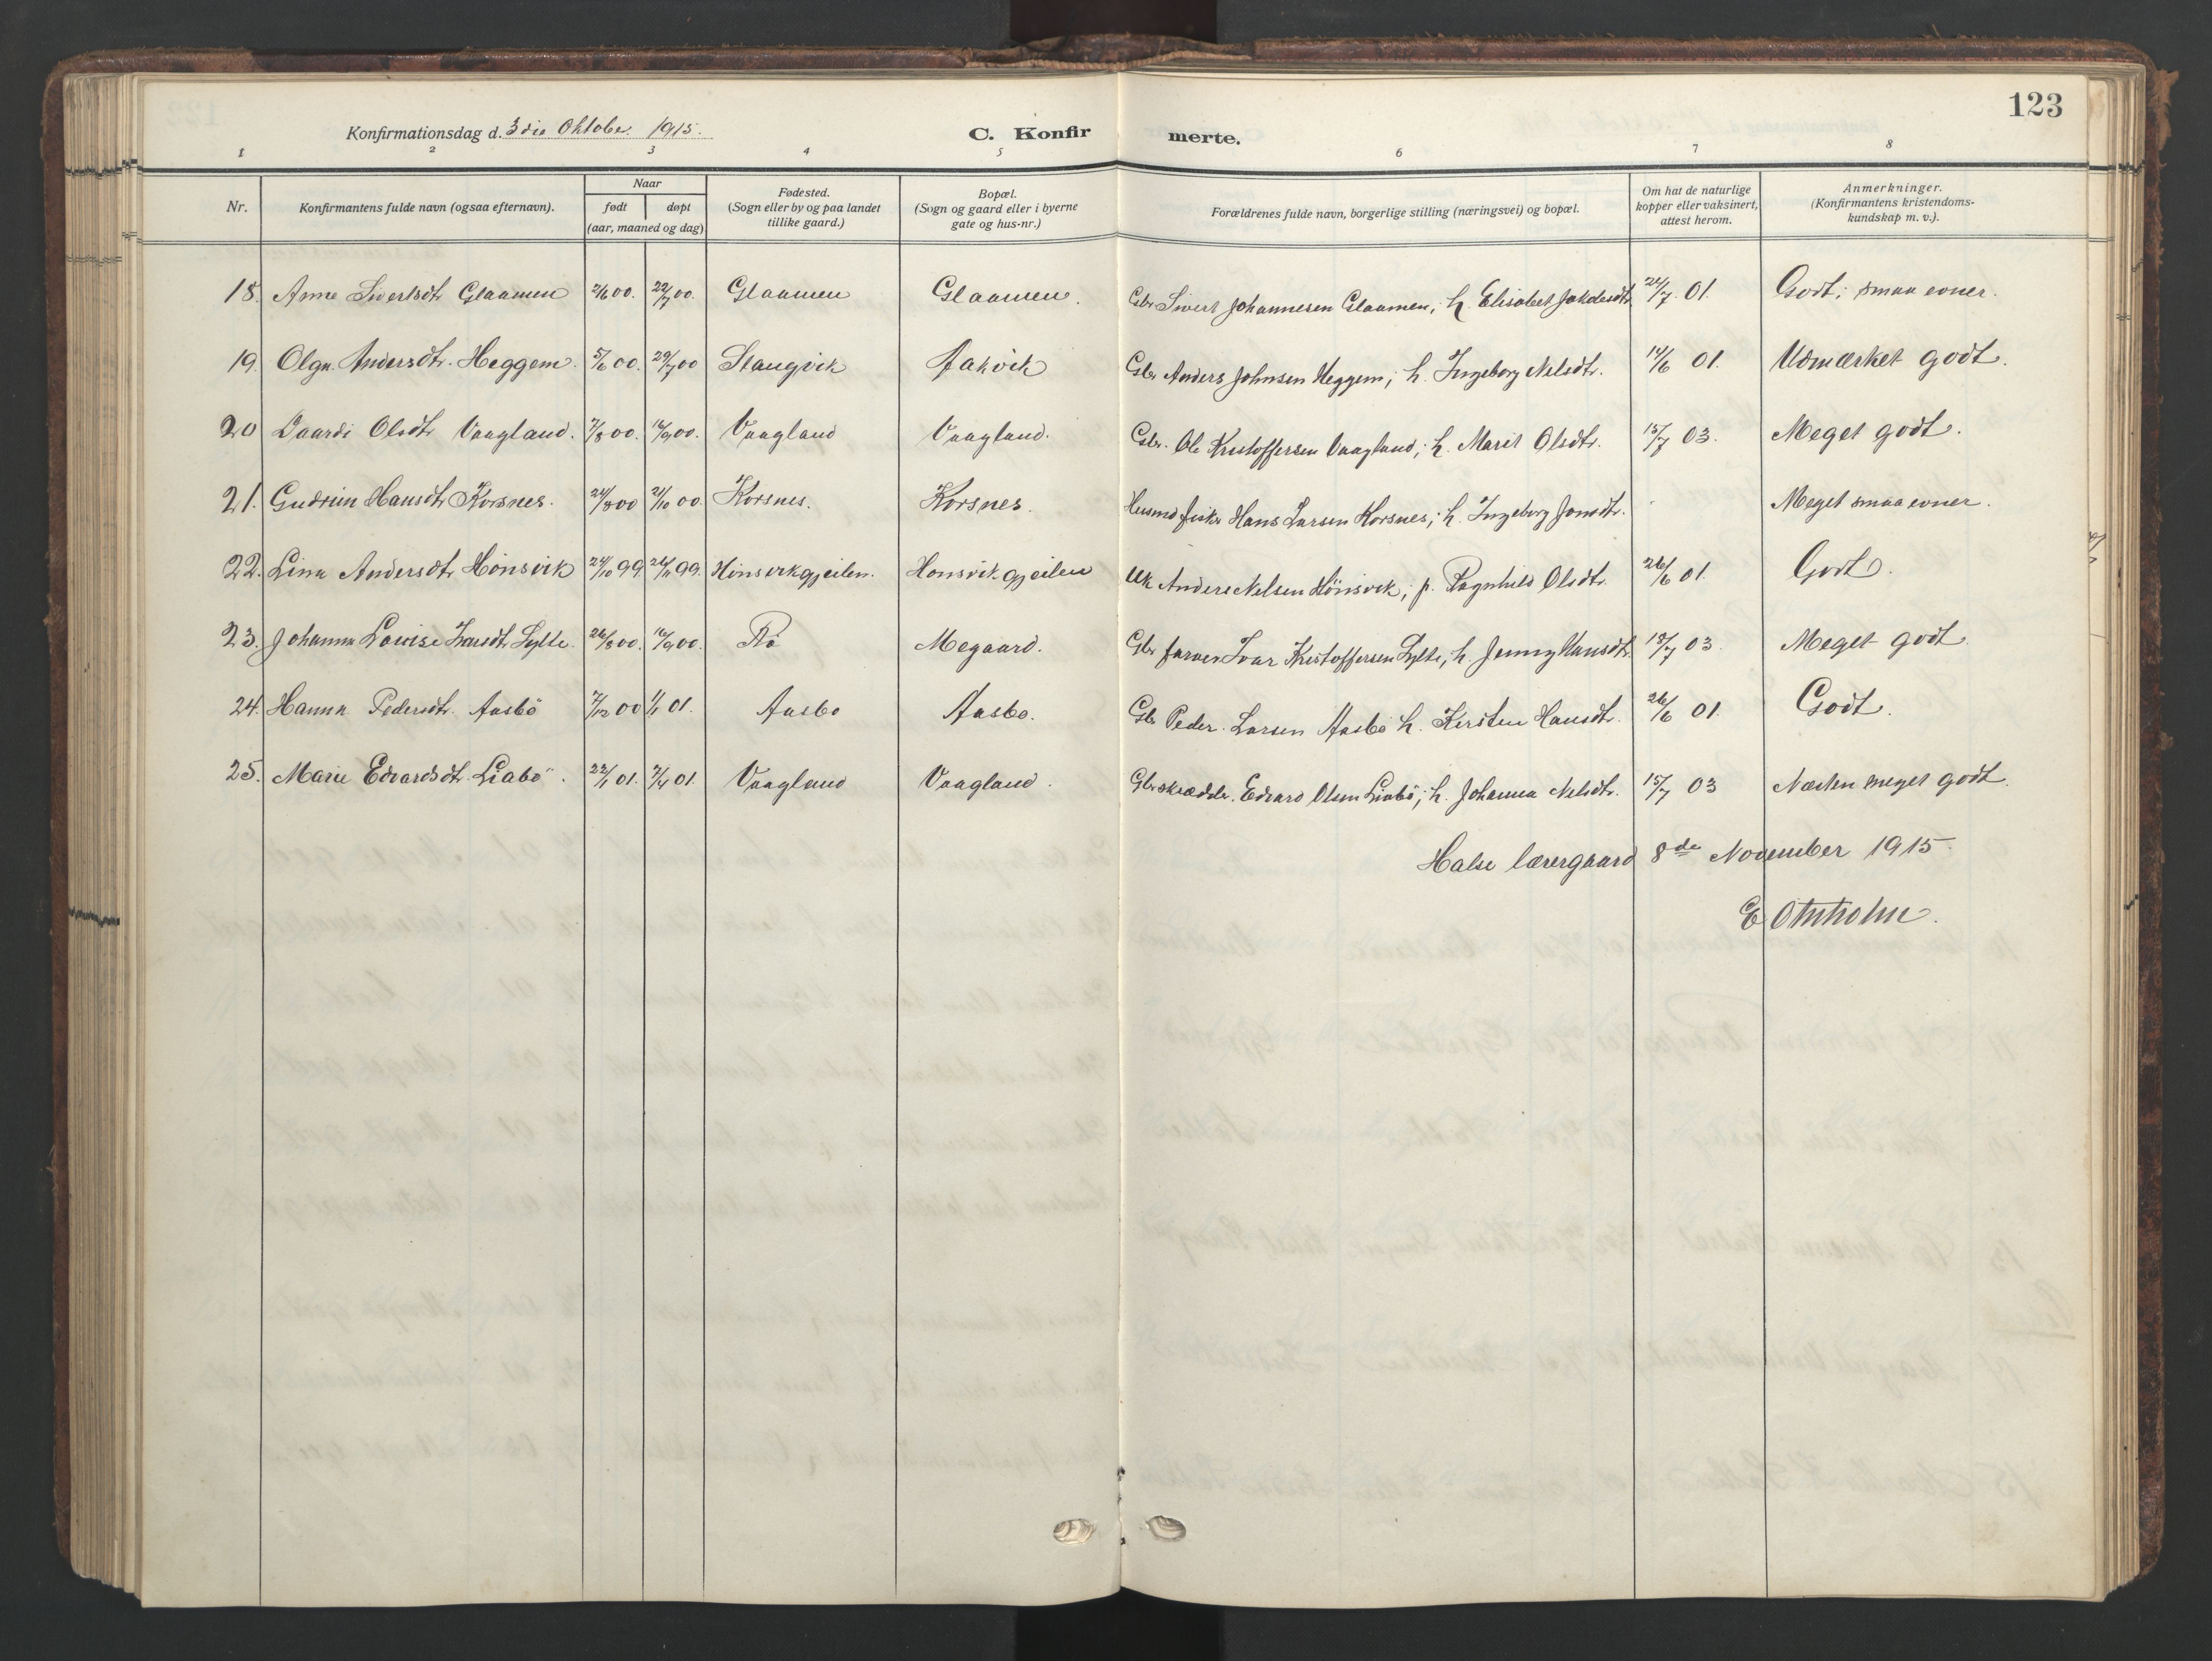 123
Konfirmationsdag d. 3die Oktober 1915.
C. Konfir merte.
1 2 3 4 5 6 7 8
Nr. Konfirmantens fulde navn (ogsaa efternavn). Naar født døpt (aar, maaned og dag) Fødested. (Sogn eller by og paa landet tillike gaard.) Bopæl. (Sogn og gaard eller i byerne gate og hus-nr.) Forældrenes fulde navn, borgerlige stilling (næringsvei) og bopæl. Om hat de naturlige kopper eller vaksinert, attest herom. Anmerkninger. (Konfirmantens kristendoms-kundskap m. v.).
18. Anne Sivertsdtr Glaamen 2/6 00. 22/7 00. Glaamen Glaamen. Gbr. Sivert Johannesen Glaamen; h. Elisabet 24/7 01. Godt; smaa evner.
19. Olga Andersdtr. Heggem. 5/6 00. 29/7 00 Stangvik Aakvik Gbr. Anders Johnsen Heggem; h. Ingeborg Nelsdtr. 14/6 01. Udmærket godt.
20 Olsdtr Vaagland. 7/8 00. 16/9 00. Vaagland Vaagland. Gbr. Ole Kristoffersen Vaagland; h. Marit Olsdtr. 15/7 03. Meget godt.
21. Gudrun Hansdtr Korsnes. 24/8 00 21/10 00. Korsnes. Korsnes. Husmd fisker Hans Larsen Korsnes; h. Ingeborg Jonsdtr. Meget smaa evner.
22. Lina Andersdtr Hönsvik 24/10 99. 26/11 99. Hönsvikgjeilen. Honsvikgjeilen Uk Anders Nelsen Hönsvik; p. Ragnhild Olsdtr. 26/6 01. Godt.
23. Johanna Lovise Ivarsdtr Sylte. 26/8 00. 16/9 00. Bö Megaard. Gbr farver Ivar Kristoffersen Sylte, h. Jenny Hansdtr. 18/7 03. Meget godt.
24. Hanna Pedersdtr. Aasbö 7/12 00 1/1 01. Aasbo Aasbo. Gb Peder Larsen Aasbö h. Kirsten Hansdtr. 26/6 01. Godt.
25. Marie Edvardsdtr. Liabö. 22/1 01. 7/4 01. Vaagland Vaagland. Gbr skrædder. Edvard Olsen Liabö; h. Johanna Nelsdtr. 15/7 03 Næsten meget godt.
Halse lærergaard 8de November 1915.
E Otnholm.